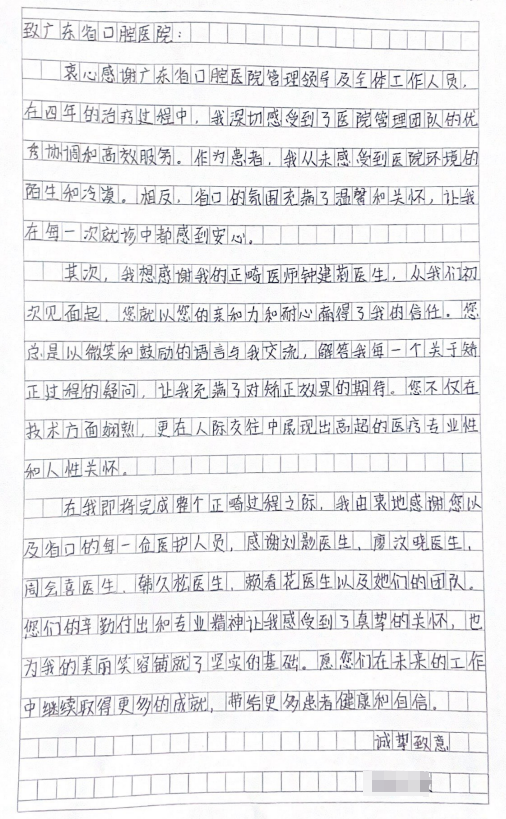 致广东省口腔医院：
衷心感谢广东省口腔医院管理领导及全体工作人员，
在四年的治疗过程中，我深切感受到了医院管理团队的优
秀协调和高效服务。作为患者，我从未感受到医院环境的
陌生和冷漠。相反，省口的氛围充满了温馨和关怀，让我
在每一次就诊中都感到安心。
其次，我想感谢我的正畸医师钟建莉医生，从我们初
次见面起，您就以您的亲和力和耐心赢得了我的信任。您
总是以微笑和鼓励的语言与我交流，解答我每一个关于矫
正过程的疑问，让我充满了对矫正效果的期待。您不仅在
技术方面娴熟，更在人际交往中展现出高超的医疗专业性
和人性关怀。
在我即将完成整个正畸过程之际，我由衷地感谢您以
及省口的每一位医护人员，感谢刘勋医生、廖汶晓医生、
周会喜医生、韩久松医生、赖春花医生以及她们的团队。
您们的辛勤付出和专业精神让我感受到了真挚的关怀，也
为我的美丽笑容铺就了坚实的基础。愿您们在未来的工作
中继续取得更多的成就，带给更多患者健康和自信。
诚挚致意